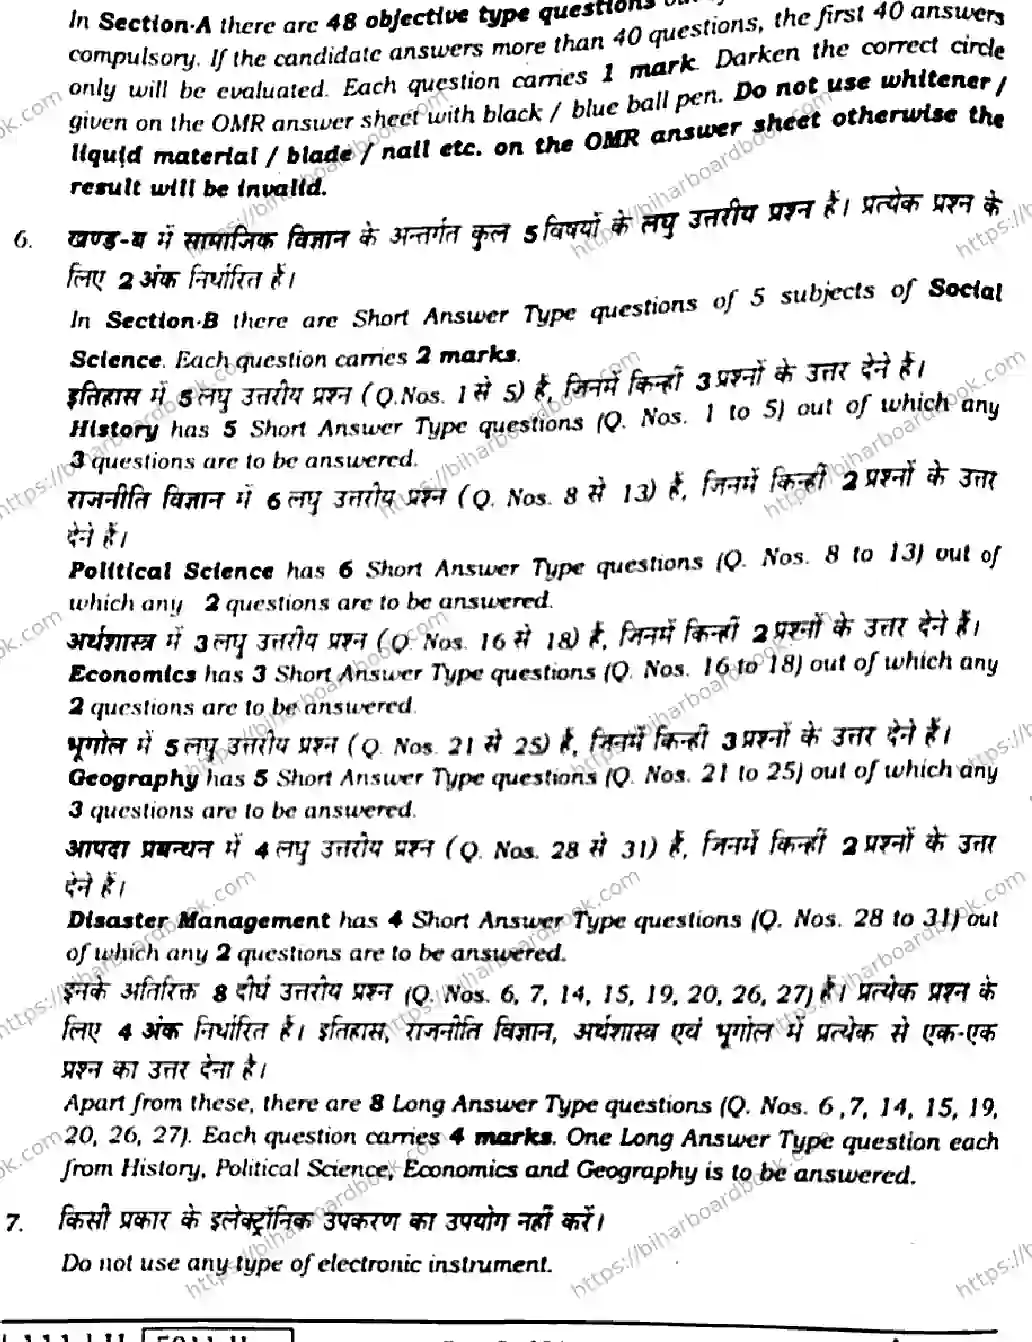 In Section-A there are 48 objective type questions
compulsory. If the candidate answers more than 40 questions, the first 40 answers
only will be evaluated. Each question carries 1 mark. Darken the correct circle
given on the OMR answer sheet with black / blue ball pen. Do not use whitener /
liquid material / blade / nail etc. on the OMR answer sheet otherwise the
result will be invalid.
6. खण्ड-ब में सामाजिक विज्ञान के अन्तर्गत कुल 5 विषयों के लघु उत्तरीय प्रश्न हैं। प्रत्येक प्रश्न के
लिए 2 अंक निर्धारित हैं।
In Section-B there are Short Answer Type questions of 5 subjects of Social
Science. Each question carries 2 marks.
इतिहास में 5 लघु उत्तरीय प्रश्न (Q.Nos. 1 से 5) हैं, जिनमें किन्हीं 3 प्रश्नों के उत्तर देने हैं।
History has 5 Short Answer Type questions (Q. Nos. 1 to 5) out of which any
3 questions are to be answered.
राजनीति विज्ञान में 6 लघु उत्तरीय प्रश्न (Q. Nos. 8 से 13) हैं, जिनमें किन्हीं 2 प्रश्नों के उत्तर
देने हैं।
Political Science has 6 Short Answer Type questions (Q. Nos. 8 to 13) out of
which any 2 questions are to be answered.
अर्थशास्त्र में 3 लघु उत्तरीय प्रश्न (Q. Nos. 16 से 18) हैं, जिनमें किन्हीं 2 प्रश्नों के उत्तर देने हैं।
Economics has 3 Short Answer Type questions (Q. Nos. 16 to 18) out of which any
2 questions are to be answered.
भूगोल में 5 लघु उत्तरीय प्रश्न (Q. Nos. 21 से 25) हैं, जिनमें किन्हीं 3 प्रश्नों के उत्तर देने हैं।
Geography has 5 Short Answer Type questions (Q. Nos. 21 to 25) out of which any
3 questions are to be answered.
आपदा प्रबन्धन में 4 लघु उत्तरीय प्रश्न (Q. Nos. 28 से 31) हैं, जिनमें किन्हीं 2 प्रश्नों के उत्तर
देने हैं।
Disaster Management has 4 Short Answer Type questions (Q. Nos. 28 to 31) out
of which any 2 questions are to be answered.
इनके अतिरिक्त 8 दीर्घ उत्तरीय प्रश्न (Q. Nos. 6, 7, 14, 15, 19, 20, 26, 27) हैं। प्रत्येक प्रश्न के
लिए 4 अंक निर्धारित हैं। इतिहास, राजनीति विज्ञान, अर्थशास्त्र एवं भूगोल में प्रत्येक से एक-एक
प्रश्न का उत्तर देना है।
Apart from these, there are 8 Long Answer Type questions (Q. Nos. 6 ,7, 14, 15, 19,
20, 26, 27). Each question carries 4 marks. One Long Answer Type question each
from History, Political Science, Economics and Geography is to be answered.
7. किसी प्रकार के इलेक्ट्रॉनिक उपकरण का उपयोग नहीं करें।
Do not use any type of electronic instrument.
https://biharboardbook.com